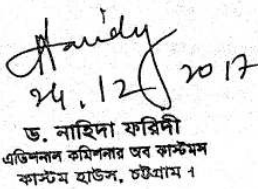 24.12 2017
ড. নাহিদা ফরিদী
এডিশনাল কমিশনার অব কাস্টমস
কাস্টম হাউস, চট্টগ্রাম ।